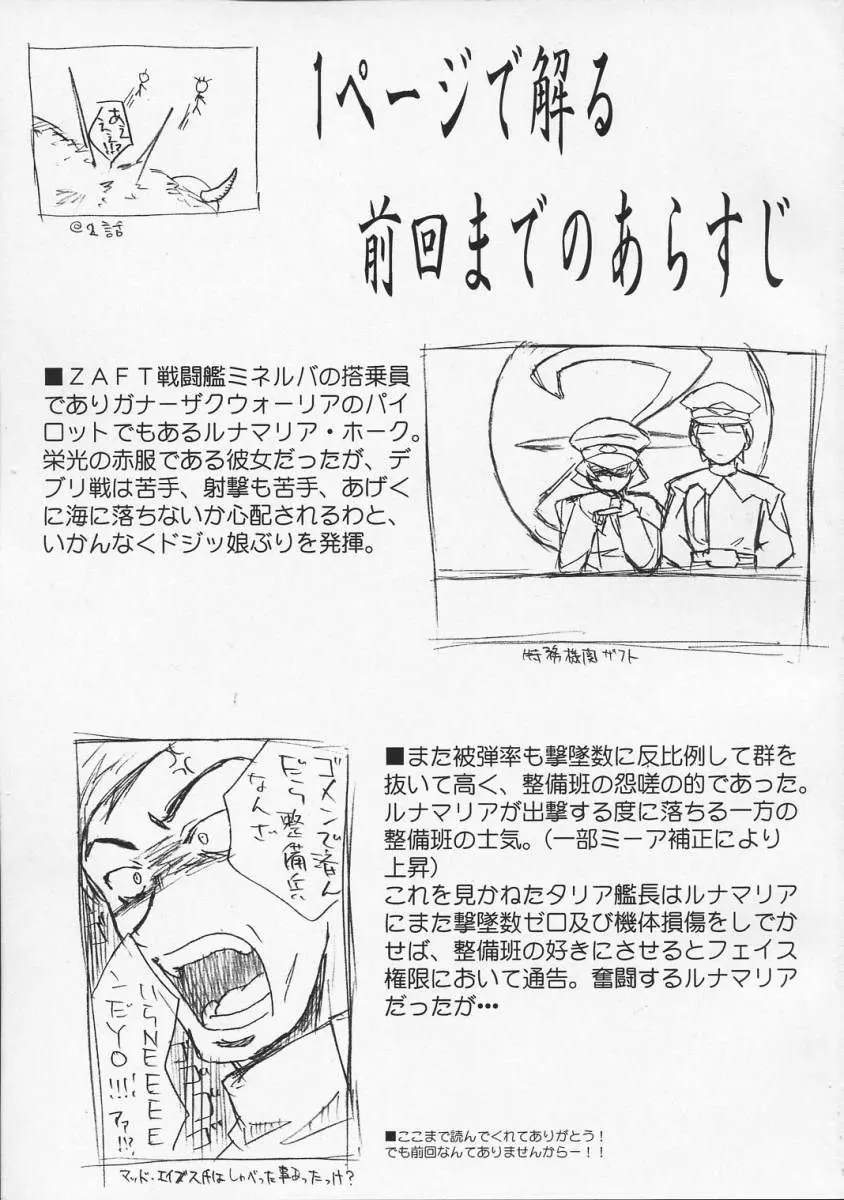 1ページで解る
前回までのあらすじ
あぇ
ぇぇ!!?
@1話
■ZAFT戦闘艦ミネルバの搭乗員
でありガナーザクウォーリアのパイ
ロットでもあるルナマリア・ホーク。
栄光の赤服である彼女だったが、デ
ブリ戦は苦手、射撃も苦手、あげく
に海に落ちないか心配されるわと、
いかんなくドジッ娘ぶりを発揮。
特務機関ザフト
ゴメンで済ん
だら整備兵
なんざ
いらNEEEE
ンだYO!!!
アァ!?
■また被弾率も撃墜数に反比例して群を
抜いて高く、整備班の怨嗟の的であった。
ルナマリアが出撃する度に落ちる一方の
整備班の士気。(一部ミーア補正により
上昇)
これを見かねたタリア艦長はルナマリア
にまた撃墜数ゼロ及び機体損傷をしでか
せば、整備班の好きにさせるとフェイス
権限において通告。奮闘するルナマリア
だったが…
マッド・エイブス氏はしゃべった事あったっけ?
■ここまで読んでくれてありがとう!
でも前回なんてありませんからー!!